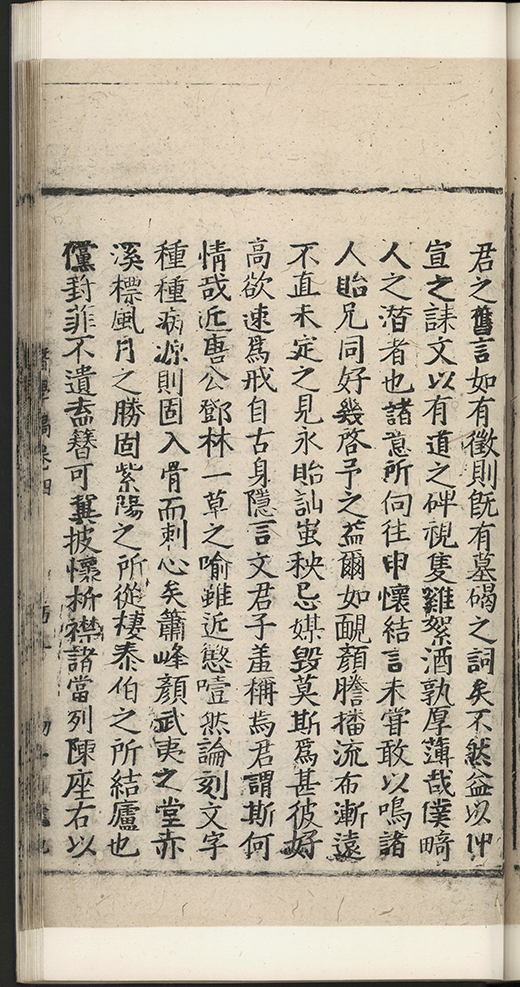 君之舊言如有徵則旣有墓碣之詞矣不然益以仲
宣之誄文以有道之碑視隻雞絮酒孰厚薄哉僕畸
人之潛者也諸意所伺往申懷結言未甞敢以鳴諸
人貽兄同好幾啓予之益爾如靦顏謄播流布漸遠
不直未定之見永貽訕蚩秧忌媒毀莫斯爲甚彼好
高欲速爲戒自古身隱言文君子羞稱焉君謂斯何
情哉近唐公鄧林一草之喻雖近懲噎然論刻文字
種種病源則固入骨而刺心矣簫峰顏武夷之堂亦
溪標風月之勝固紫陽之所從棲泰伯之所結廬也
儻葑菲不遺盍簪可冀披懷析襟諸當列陳座右以
卷四